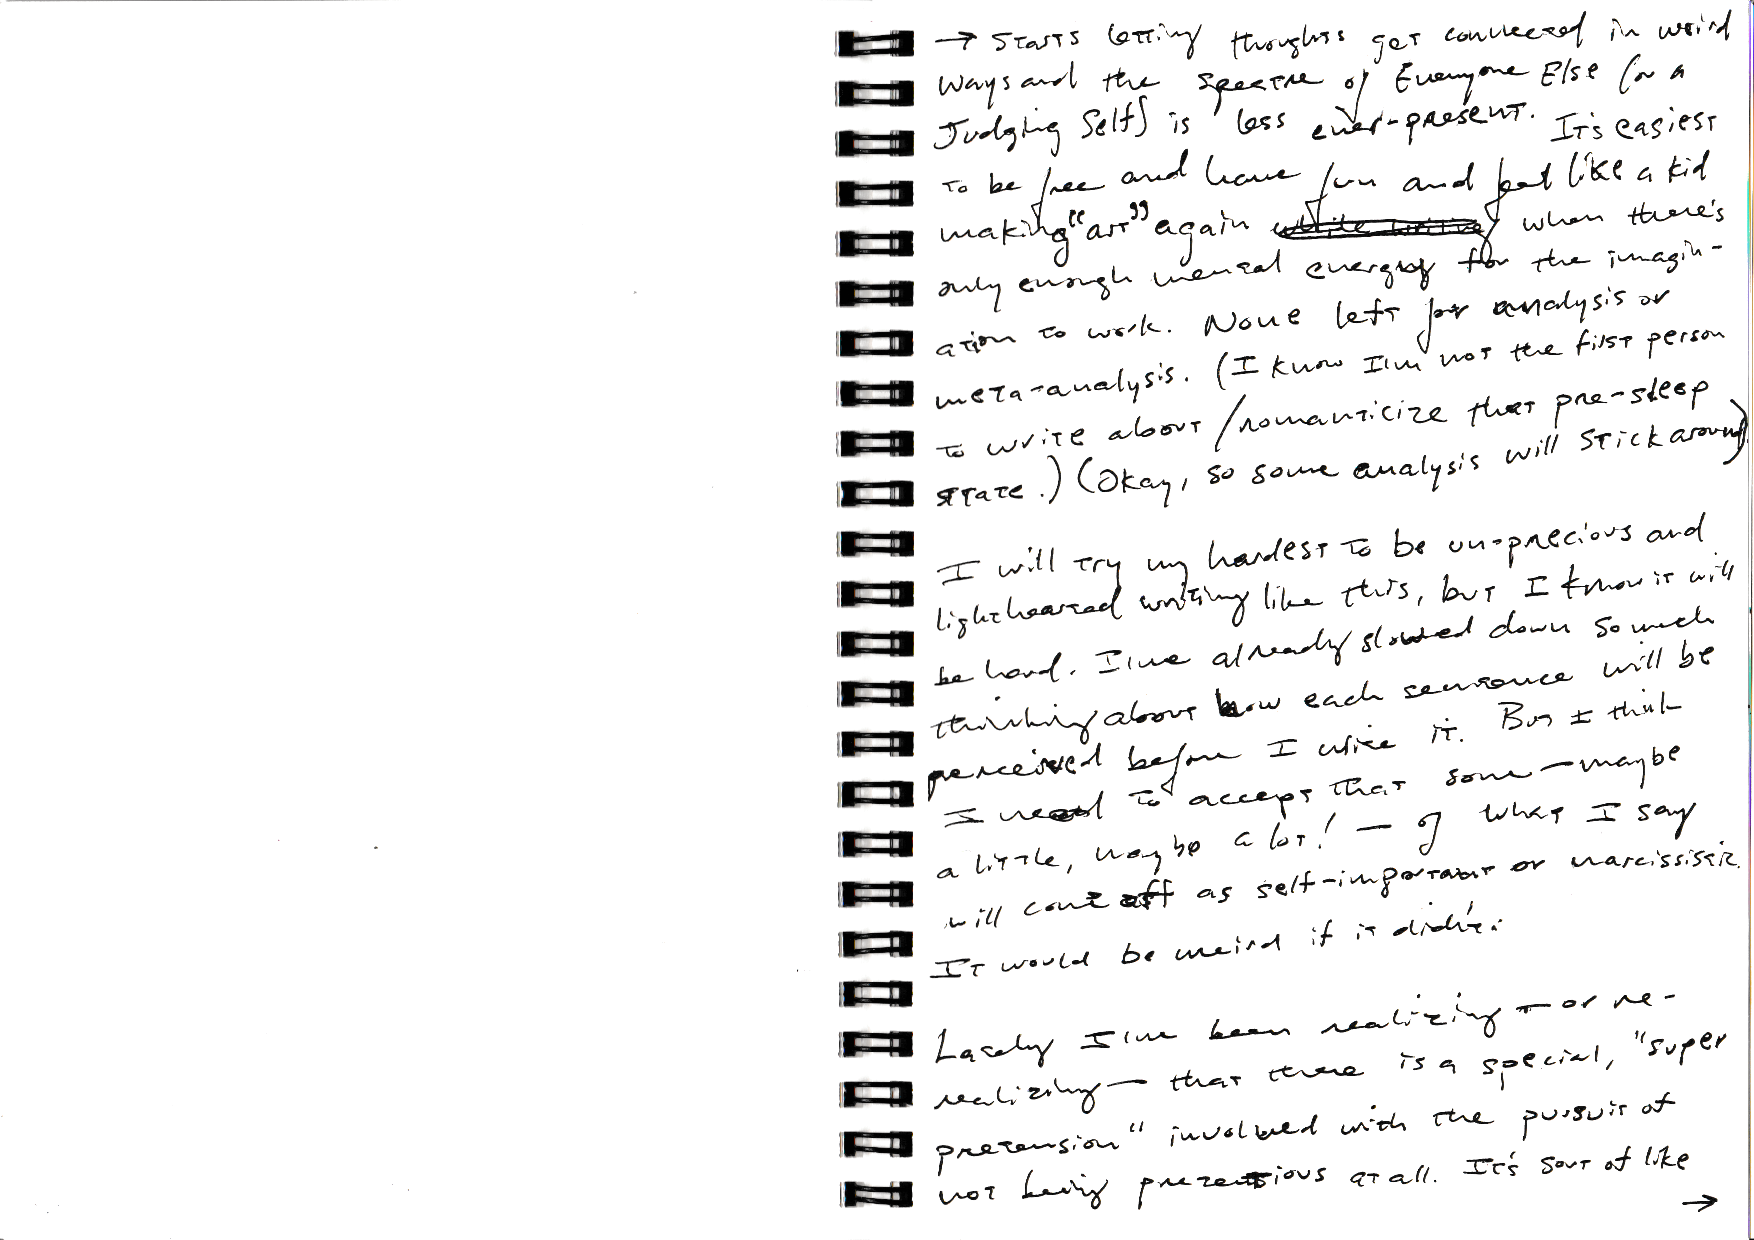 → Starts letting thoughts get connected in weird
ways and the spectre of Everyone Else (or a
Judging Self) is less ever-present. It's easiest
to be free and have fun and feel like a kid
making "art" again while writing when there's
only enough mental energy for the imagin-
ation to work. None left for analysis or
meta-analysis. (I know I'm not the first person
to write about/romanticize that pre-sleep
state.) (Okay, so some analysis will stick around)
I will try my hardest to be un-precious and
lighthearted writing like this, but I know it will
be hard. I've already slowed down so much
thinking about how each sentence will be
perceived before I write it. But I think
I need to accept that some—maybe
a little, maybe a lot! — of what I say
will come off as self-important or narcissistic.
It would be weird if it didn't.
Lately I've been realizing — or re-
realizing — that there is a special, "super
pretension" involved with the pursuit of
not being pretentious at all. It's sort of like
→